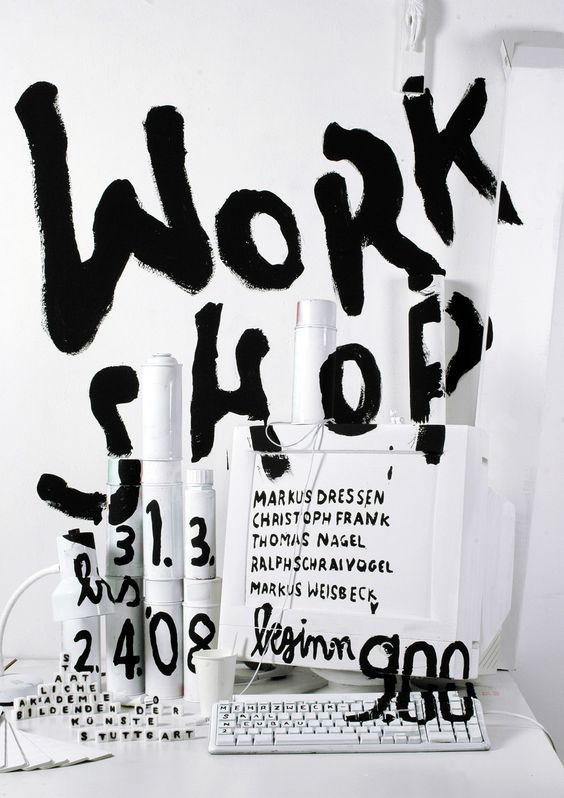 WORK
SHOP
31. 3.
bis
2. 4. 08
MARKUS DRESSEN
CHRISTOPH FRANK
THOMAS NAGEL
RALPH SCHRAIVOGEL
MARKUS WEISBECK
beginn 9.00
S
T
AAT
LICHE
AKADEMIE
BILDENDEN DER
KÜNSTE
STUTTGART
MEHRZWECK
SAAL
NEUBAU